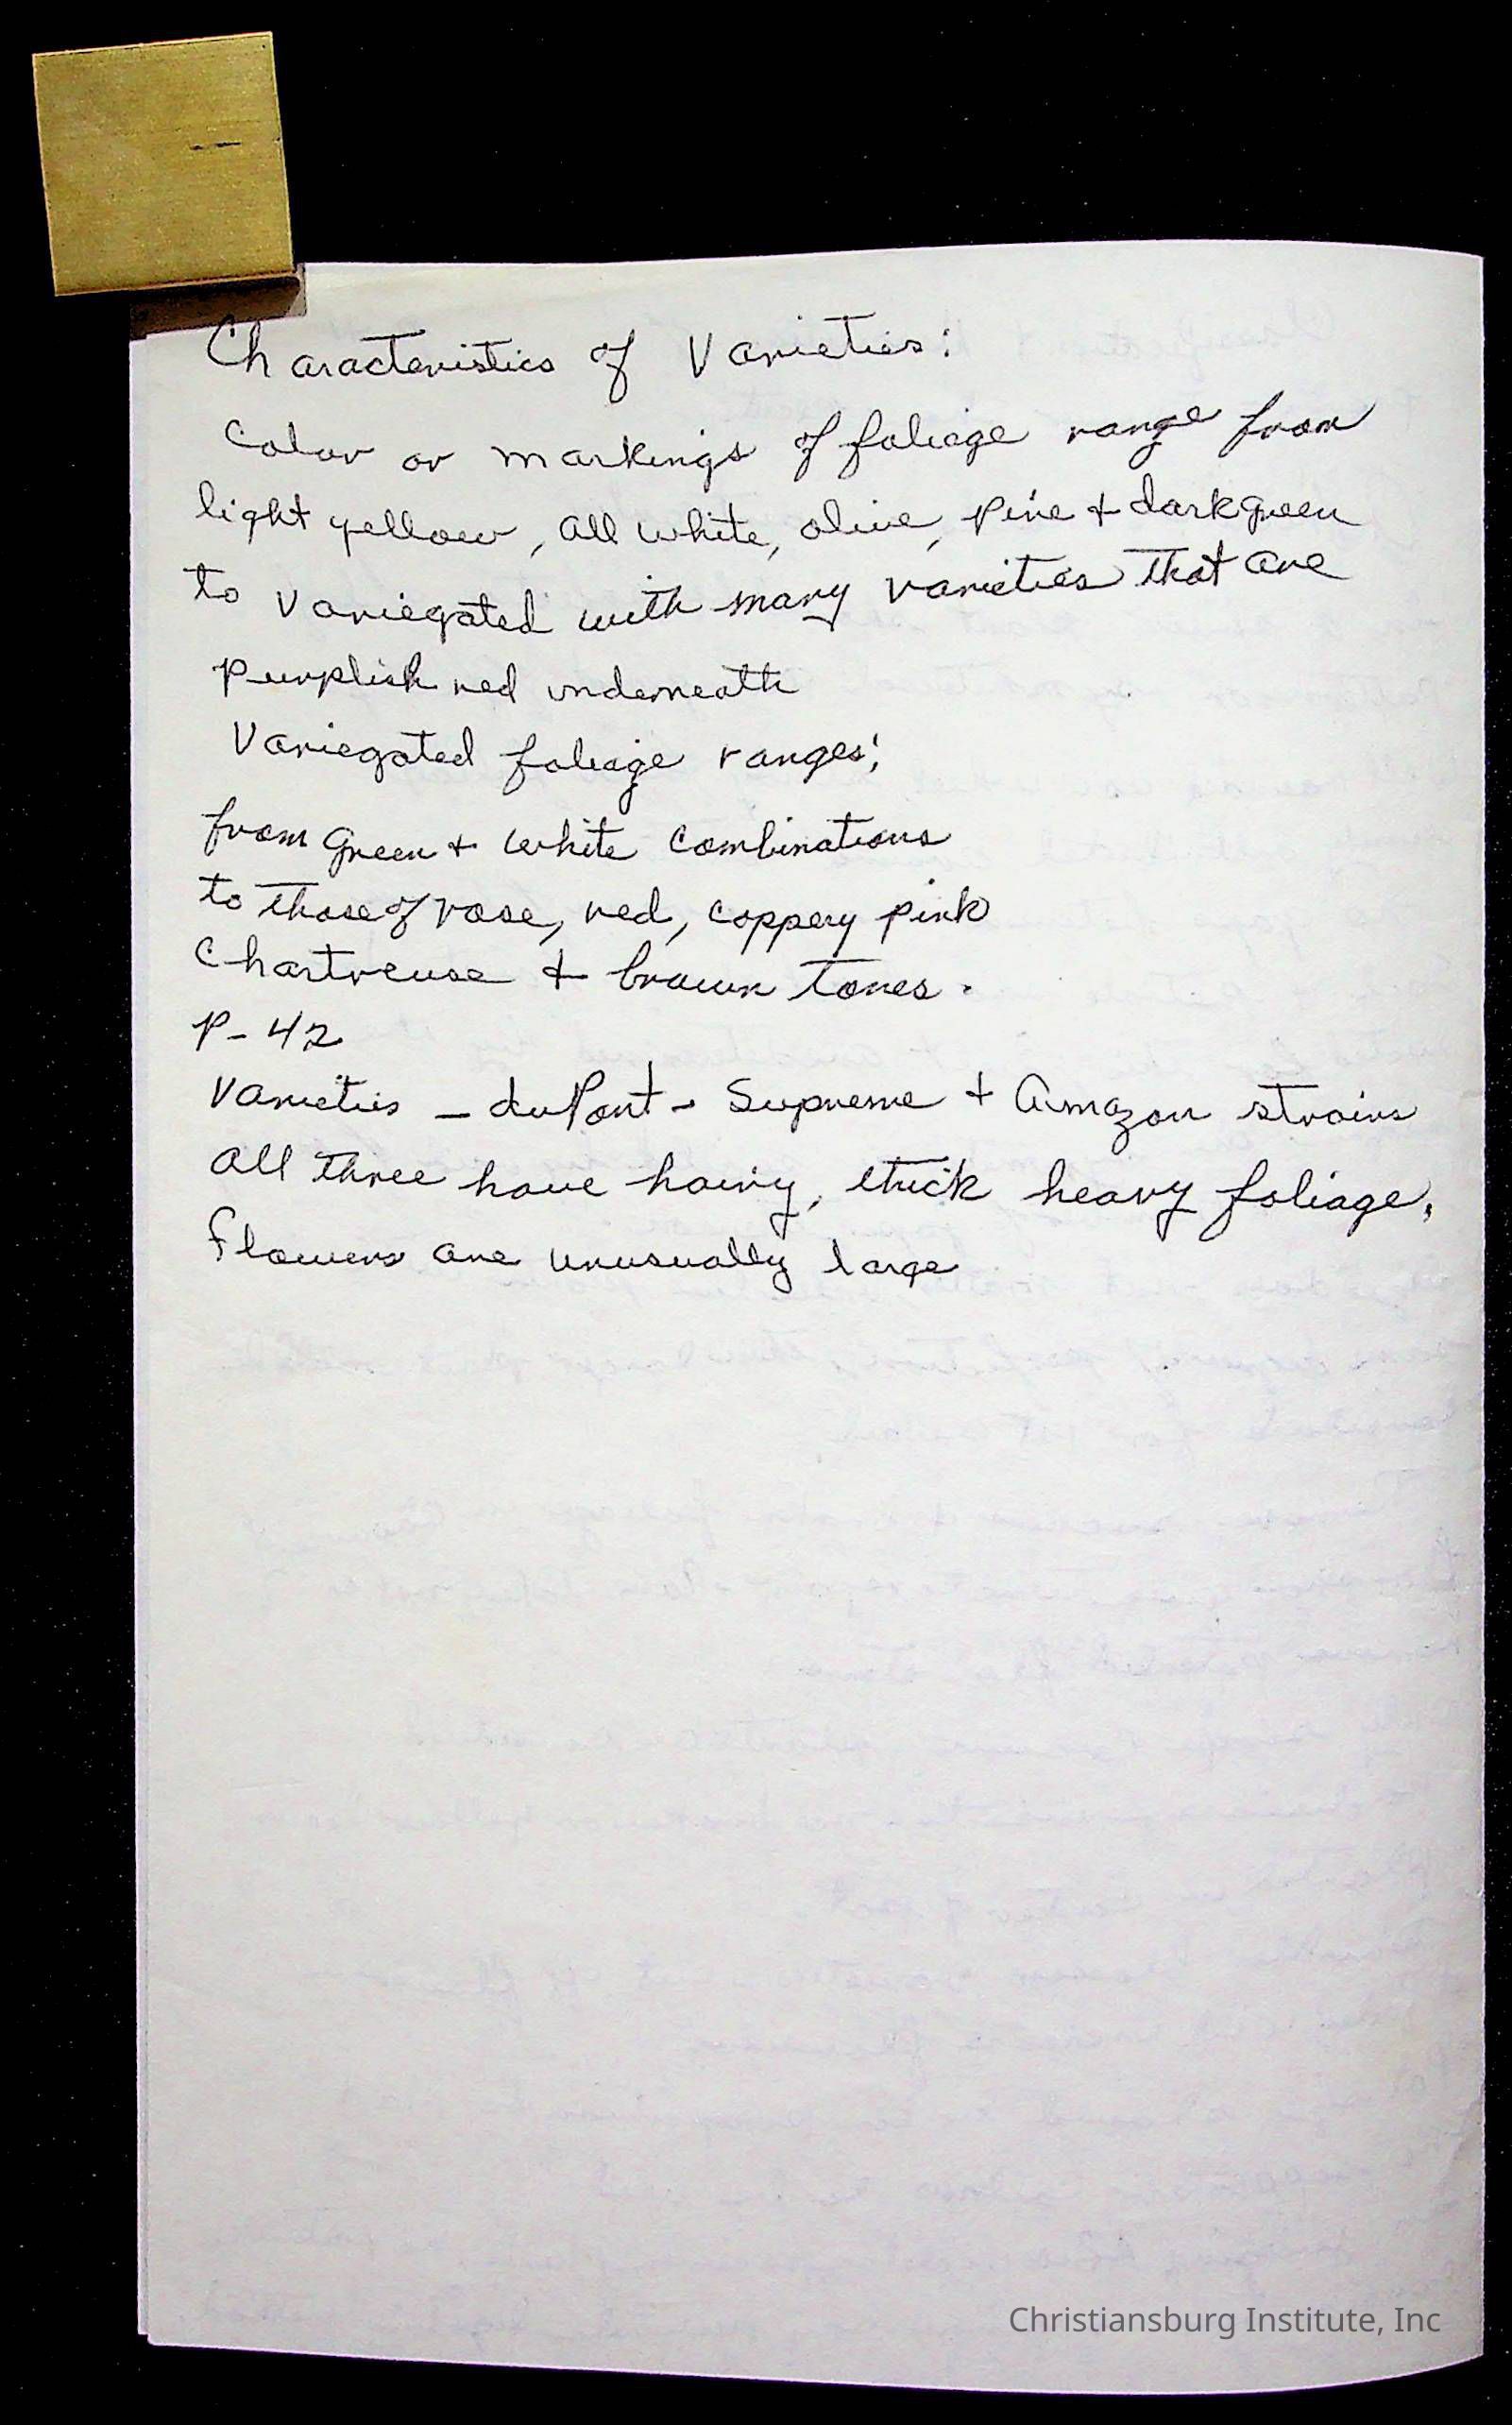 Characteristics of Varieties:
Color or markings of foliage range from
light yellow, all white, olive, pine + dark green
to variegated with many varieties that are
purplish red underneath
Variegated foliage ranges:
from green + white combinations
to those of rose, red, coppery pink
Chartreuse + brown tones.
P-42
Varieties - duPont - Supreme + Amazon strains
All three have hairy, thick heavy foliage,
Flowers are unusually large
Christiansburg Institute, Inc